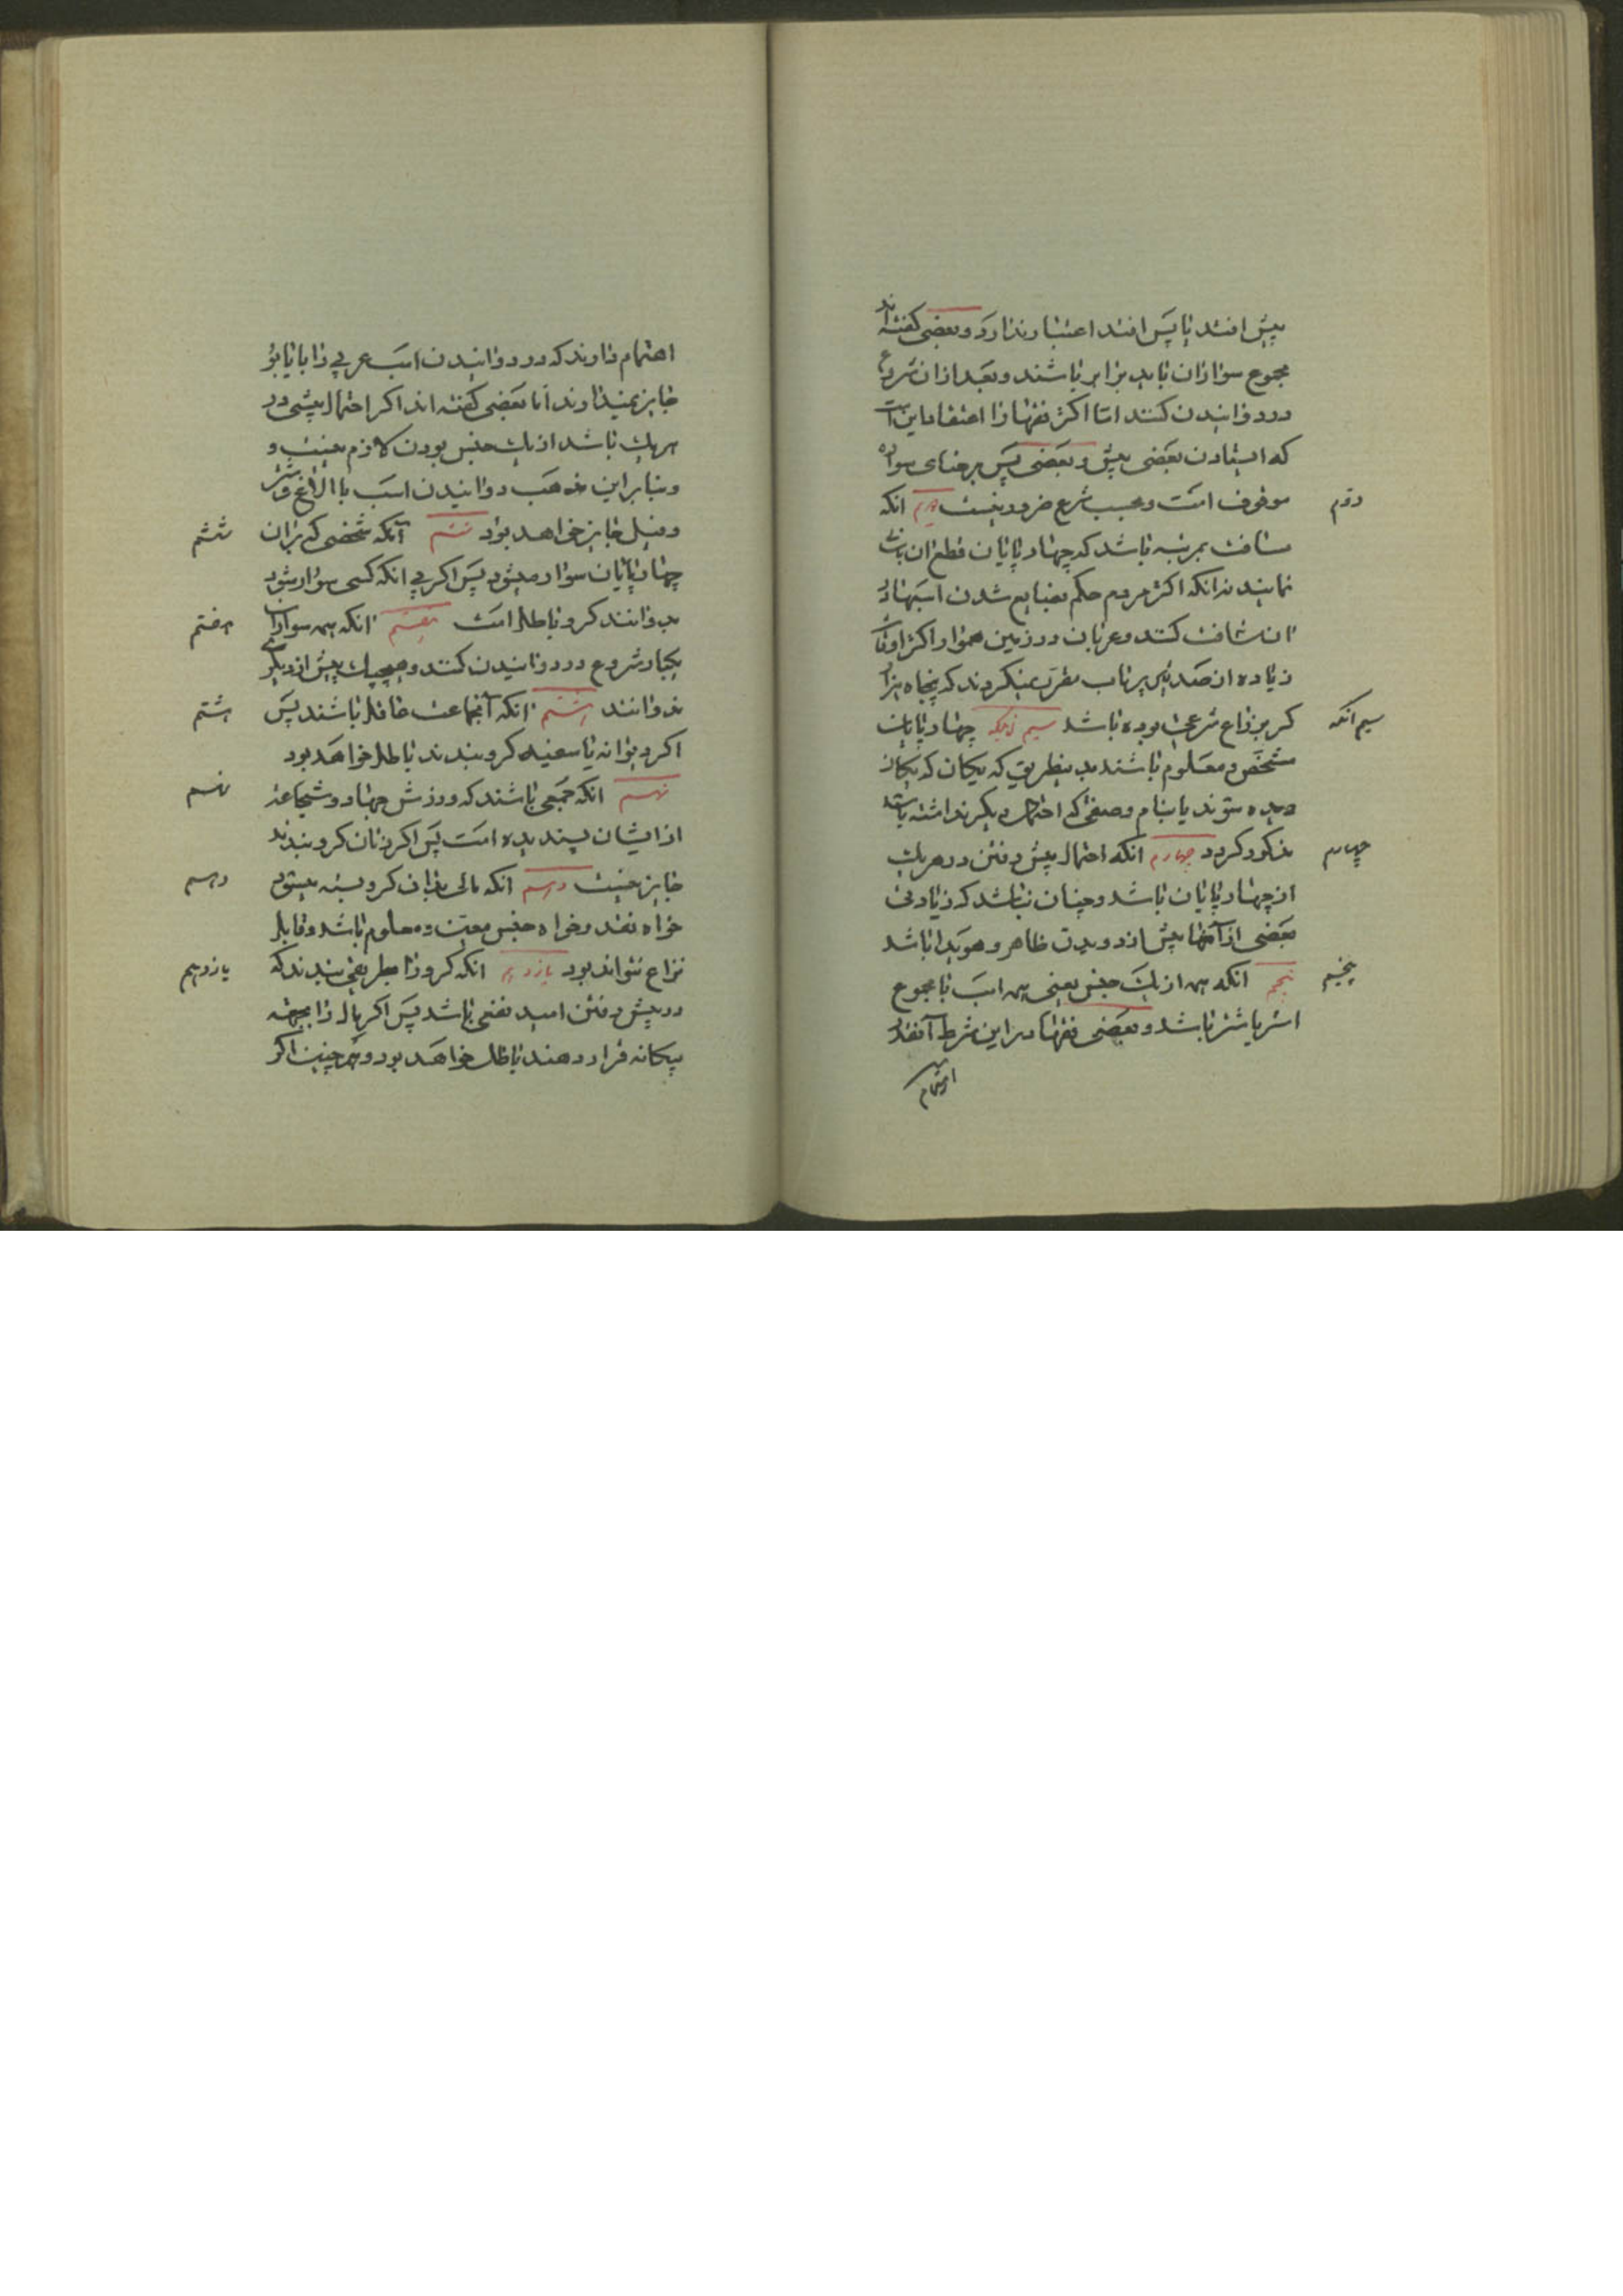 پیش افتد یا پس افتد اعتبار ندارد و بعضی گفته‌اند
مجموع سواران باید برابر باشند و بعد از آن شروع
در دوانیدن کنند امّا اکثر فقها را اعتقاد این است
که ایستادن بعضی پیش و بعضی پس بر رضای سواره
موقوف است و بحسب شرع ضرور نیست دویم آنکه
دوّم
مسافت بمرتبه باشد که چهار پایان قطع آن
نمایند نه آنکه اکثر مردم حکم بضایع شدن اسبها در
آن مسافت کنند و عربان در زمین هموار اکثر اوقات
زیاده از صد تیر پرتاب مقرر نمیکردند که پنجاه هزار
کر بزراع شرعی بوده باشد سیم آنکه چهار پایان
سیم آنکه
مشخّص و معلوم باشند بدینطریق که یکان که یکان
دیده شوند یا بنام وصفی که احتمال دیگر نداشته باشد
مذکور گردد چهارم آنکه احتمال پیش رفتن در هر یک
چهارم
از چهار پایان باشد و چنان نباشد که زیادتی
بعضی از آنها پیش از دویدن ظاهر و هویدا باشد
پنجم آنکه همه از یک جنس یعنی همه اسب یا مجموع
پنجم
استر یا شتر باشد و بعضی فقها در این شرط آنقدر
اهتمام
اهتمام دارند که در دوانیدن اسب عربی را با یابو
جایز نمیدارند امّا بعضی گفته‌اند اکر احتمال پیشی در
هر یک باشد از یک جنس بودن لازم نیست و
و بنا بر این مذهب دوانیدن اسب با الاغ و شتر
و فیل جایز خواهد بود ششم آنکه شخصی که بر آن
ششم
چهار پایان سوار میشود پس اکر بی آنکه کسی سوار شود
بدوانند کرو باطل است هفتم آنکه همه سواران
هفتم
یکبار شروع در دوانیدن کنند و هیچیک پیش از دیگری
ندوانند هشتم آنکه آنجماعت عاقل باشند پس
هشتم
اکر دیوانه یا سفیه کرو ببندند باطل خواهد بود
نهم آنکه جمعی باشند که ورزش جهاد و شجاعة
نهم
از ایشان پسندیده است پس اکر زنان کرو ببندند
جایز نیست دهم آنکه مالی بدان کرو بسته میشود
دهم
خواه نقد و خواه جنس معیّن و معلوم باشد و قابل
نزاع نتواند بود یازدهم آنکه کرو را بطریقی ببندند که
یازدهم
در پیش رفتن امید نفعی باشد پس اکر مال را بجهة
بیکانه قرار دهند باطل خواهد بود و همچنین اکر